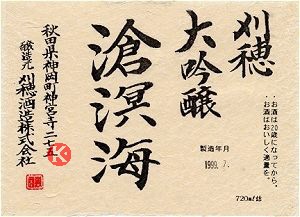 刈穂
大吟醸
滄溟海
お酒は20歳になってから。
お酒はおいしく適量を。
製造年月
1999. 7.
720ml詰
秋田県神岡町神宮寺二七五
醸造元 刈穂酒造株式会社
K